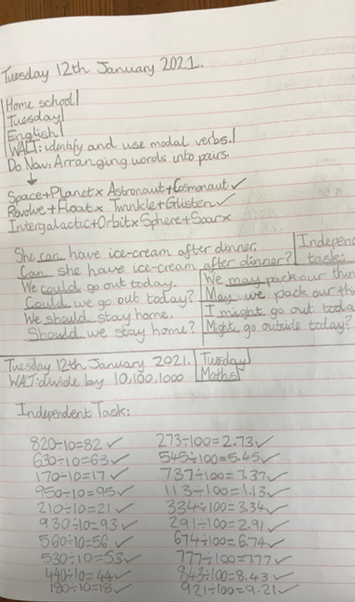 Tuesday 12th January 2021.
Home school
Tuesday
English
WALT: identify and use modal verbs.
Do Now: Arranging words into pairs.
↓
Space+Planet× Astronaut+Cosmonaut✓
Revolve+Float× Twinkle+Glisten✓
Intergalactic+Orbit× Sphere+Soar×
She can have ice-cream after dinner.
Can she have ice-cream after dinner?
We could go out today.
Could we go out today?
We should stay home.
Should we stay home?
Independ
task:
We may pack our thin
May we pack our th
I might go out toda
Might go outside today?
Tuesday 12th January 2021.
Tuesday
Maths
WALT: divide by 10,100,1000
Independent Task:
820÷10=82 ✓
630÷10=63 ✓
170÷10=17 ✓
950÷10=95 ✓
210÷10=21 ✓
930÷10=93 ✓
560÷10=56 ✓
530÷10=53 ✓
440÷10=44 ✓
180÷10=18 ✓
273÷100=2.73 ✓
545÷100=5.45 ✓
737÷100=7.37 ✓
113÷100=1.13 ✓
334÷100=3.34 ✓
291÷100=2.91 ✓
674÷100=6.74 ✓
777÷100=7.77 ✓
843÷100=8.43 ✓
921÷100=9.21 ✓